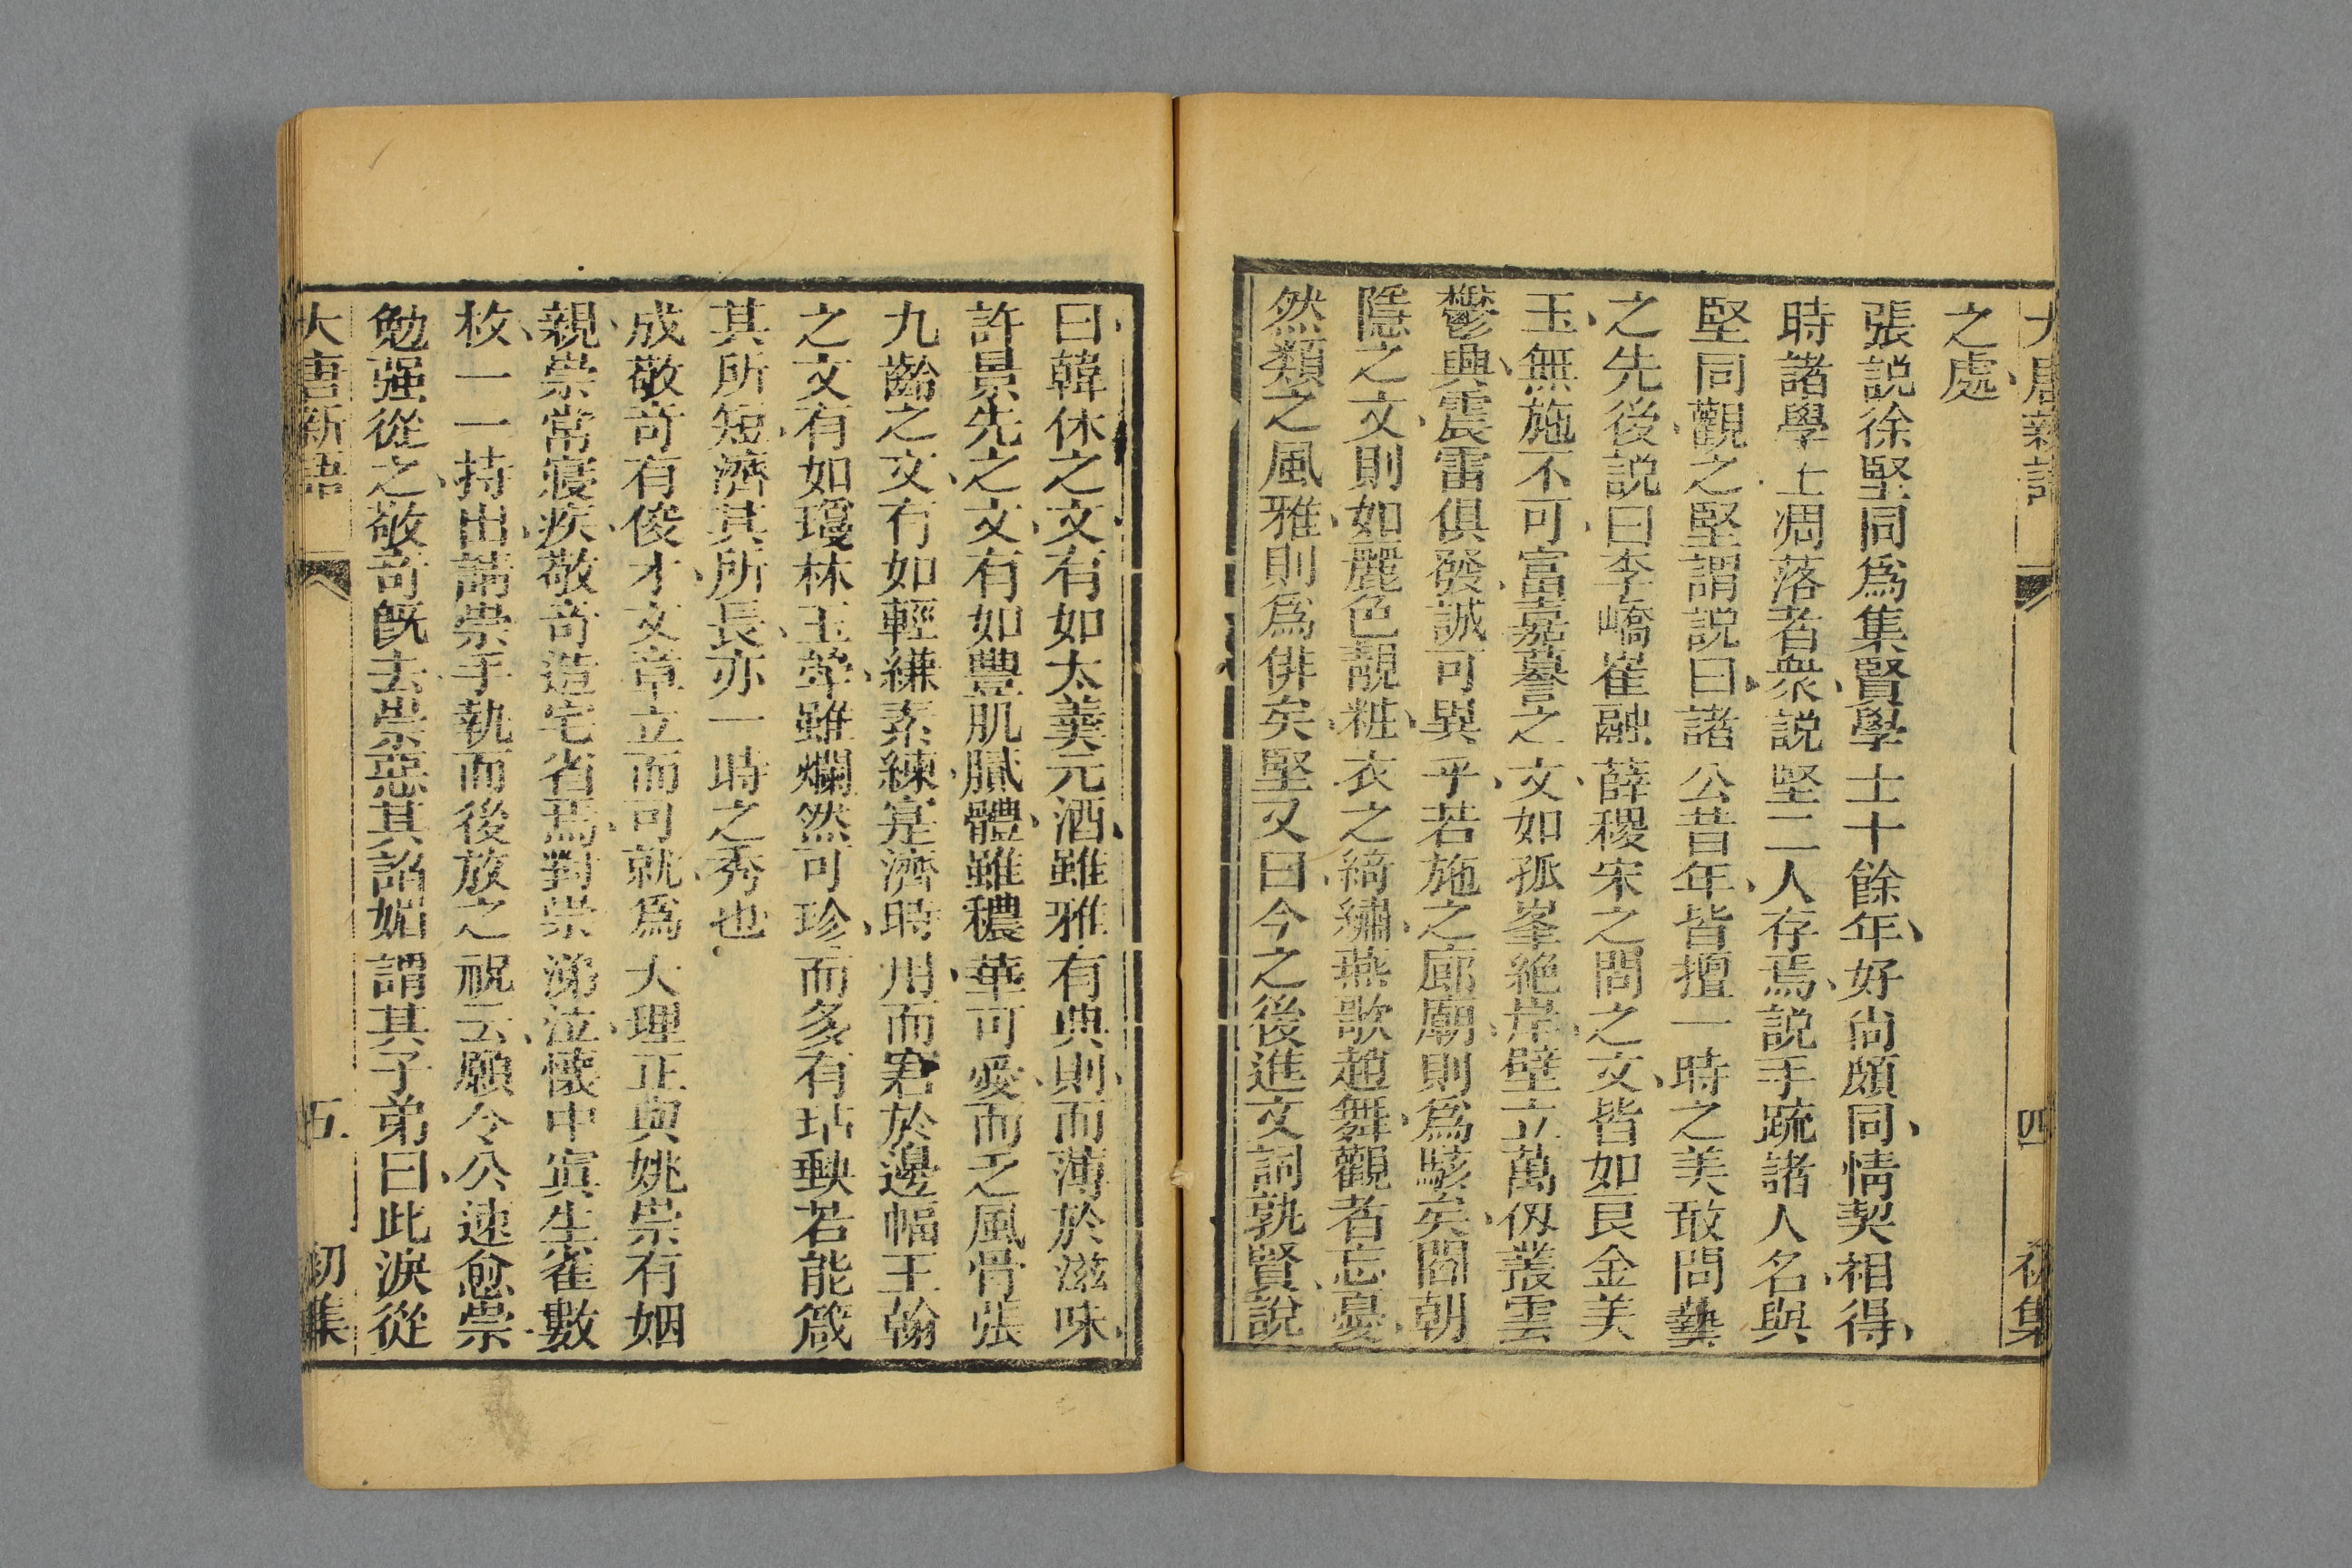 大唐新語 四 初集
之處
張説徐堅同爲集賢學士十餘年好尚頗同情契相得
時諸學士凋落者衆説堅二人存焉説手疏諸人名與
堅同觀之堅謂説曰諸公昔年皆擅一時之美敢問藝
之先後説曰李嶠崔融薛稷宋之問之文皆如良金美
玉無施不可富嘉謩之文如孤峯絶岸壁立萬仭叢雲
鬱興震雷俱發誠可異乎若施之廊廟則爲駭矣閻朝
隱之文則如麗色靚粧衣之綺繡燕歌趙舞觀者忘憂
然類之風雅則爲俳矣堅又曰今之後進文詞孰賢說
曰韓休之文有如太羹元酒雖雅有典則而薄於滋味
許景先之文有如豐肌膩體雖穠華可愛而乏風骨張
九齡之文有如輕縑素練寔濟時用而窘於邊幅王翰
之文有如瓊林玉斝雖爛然可珍而多有玷缺若能箴
其所短濟其所長亦一時之秀也
成敬竒有俊才文章立而可就爲大理正與姚崇有姻
親崇常寢疾敬竒造宅省焉對崇涕泣懷中寘生雀數
枚一一持出請崇手執而後放之祝云願令公速愈崇
勉强從之敬竒旣去崇惡其諂媚謂其子弟曰此淚從
大唐新語 五 初集